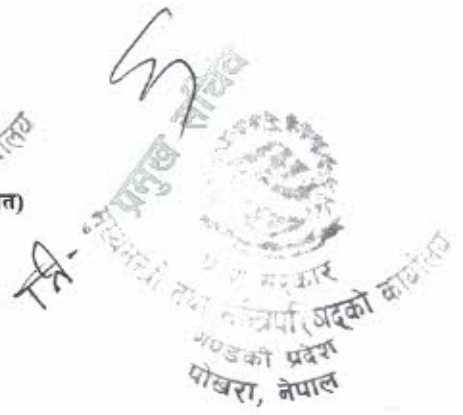 प्रमुख सचिव
त)
प्रदेश सरकार
मुख्यमन्त्री तथा मन्त्रिपरिषद्को कार्यालय
गण्डकी प्रदेश
पोखरा, नेपाल